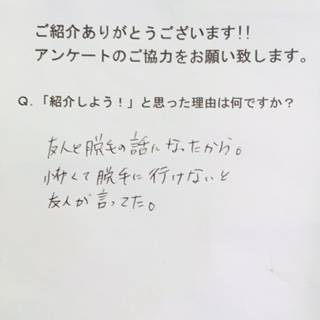 ご紹介ありがとうございます!!
アンケートのご協力をお願い致します。
Q.「紹介しよう！」と思った理由は何ですか？
友人と脱毛の話になったから。
怖くて脱毛に行けないと
友人が言ってた。